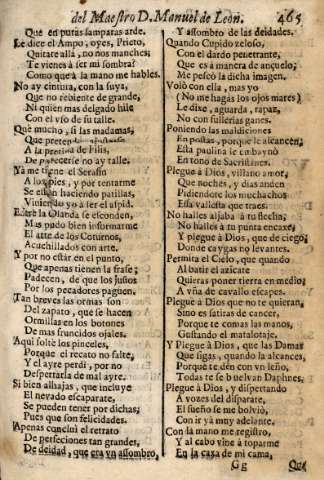 del Maestro D. Manuel de Leon. 465
Que en puras lamparas arde.
Le dice el Ampo, oyes, Prieto,
Quitate allà, no nos manches;
Te vienes à ser mi sombra?
Como que à la mano me hables.
No ay cintura, con la suya,
Que no rebiente de grande,
Ni quien mas delgado hile
Con el vso de su talle.
Què mucho, si las madamas,
Que
A la pretina de Filis,
De parecerse no ay talle.
Yà me tiene el Serafin
A los pies, y por tentarme
Se estàn haciendo patillas,
Viviendo yo à ser el aspid.
Entre la Olanda se esconden,
Mas pudo bien informarme
El arte de los Coturnos,
Acuchillados con arte.
Y por no estàr en el punto,
Que apenas tienen la frase;
Padecen, de que los justos
Por los pecadores paguen.
Tan breves las ormas son
Del zapato, que se hacen
Ormillas en los botones
De mas fruncidos ojales.
Aqui soltè los pinceles,
Porque el recato no falte,
Y el ayre perdi, por no
Despertarla de mal ayre.
Si bien alhajas, que incluye
El nevado escaparate,
Se pueden tener por dichas;
Pues que son felicidades.
Apenas concluì el retrato
De perfecciones tan grandes,
De deidad, que era vn assombro,
Y assombro de las deidades.
Quando Cupido zeloso,
Con el dardo penetrante,
Que es à manera de ançuelo;
Me pescò la dicha imagen.
Volò con ella, mas yo
(No me hagas los ojos mares)
Le dixe, aguarda, rapaz,
No con fullerias ganes.
Poniendo las maldiciones
En pollas, porque le alcancen;
Esta paulina le embayno
En tono de Sacristanes.
Plegue à Dios, villano amor,
Que noches, y dias anden
Pidiendote los muchachos
Essa vallesta que traes.
No halles aljaba à tu flecha,
No halles à tu punta encaxe,
Y plegue à Dios, que de ciego,
Donde caygas no levantes.
Permita el Cielo, que quando
Al batir el azicate
Quieras poner tierra en medio,
A vña de cavallo escapes.
Plegue à Dios que no te quieran,
Sino es satiras de cancer,
Porque te comas las manos,
Gustando el matalotaje.
Y Plegue à Dios, que las Damas
Que sigas, quando la alcances,
Porque te dèn con vn leño,
Todas te se buelvan Daphnes.
Plegue à Dios, y dispertando
A vozes del disparate,
El sueño se me bolviò,
Con ir yà muy adelante.
Con la mano me registro,
Y al cabo vine à toparme
En la caxa de mi cama,
Gg